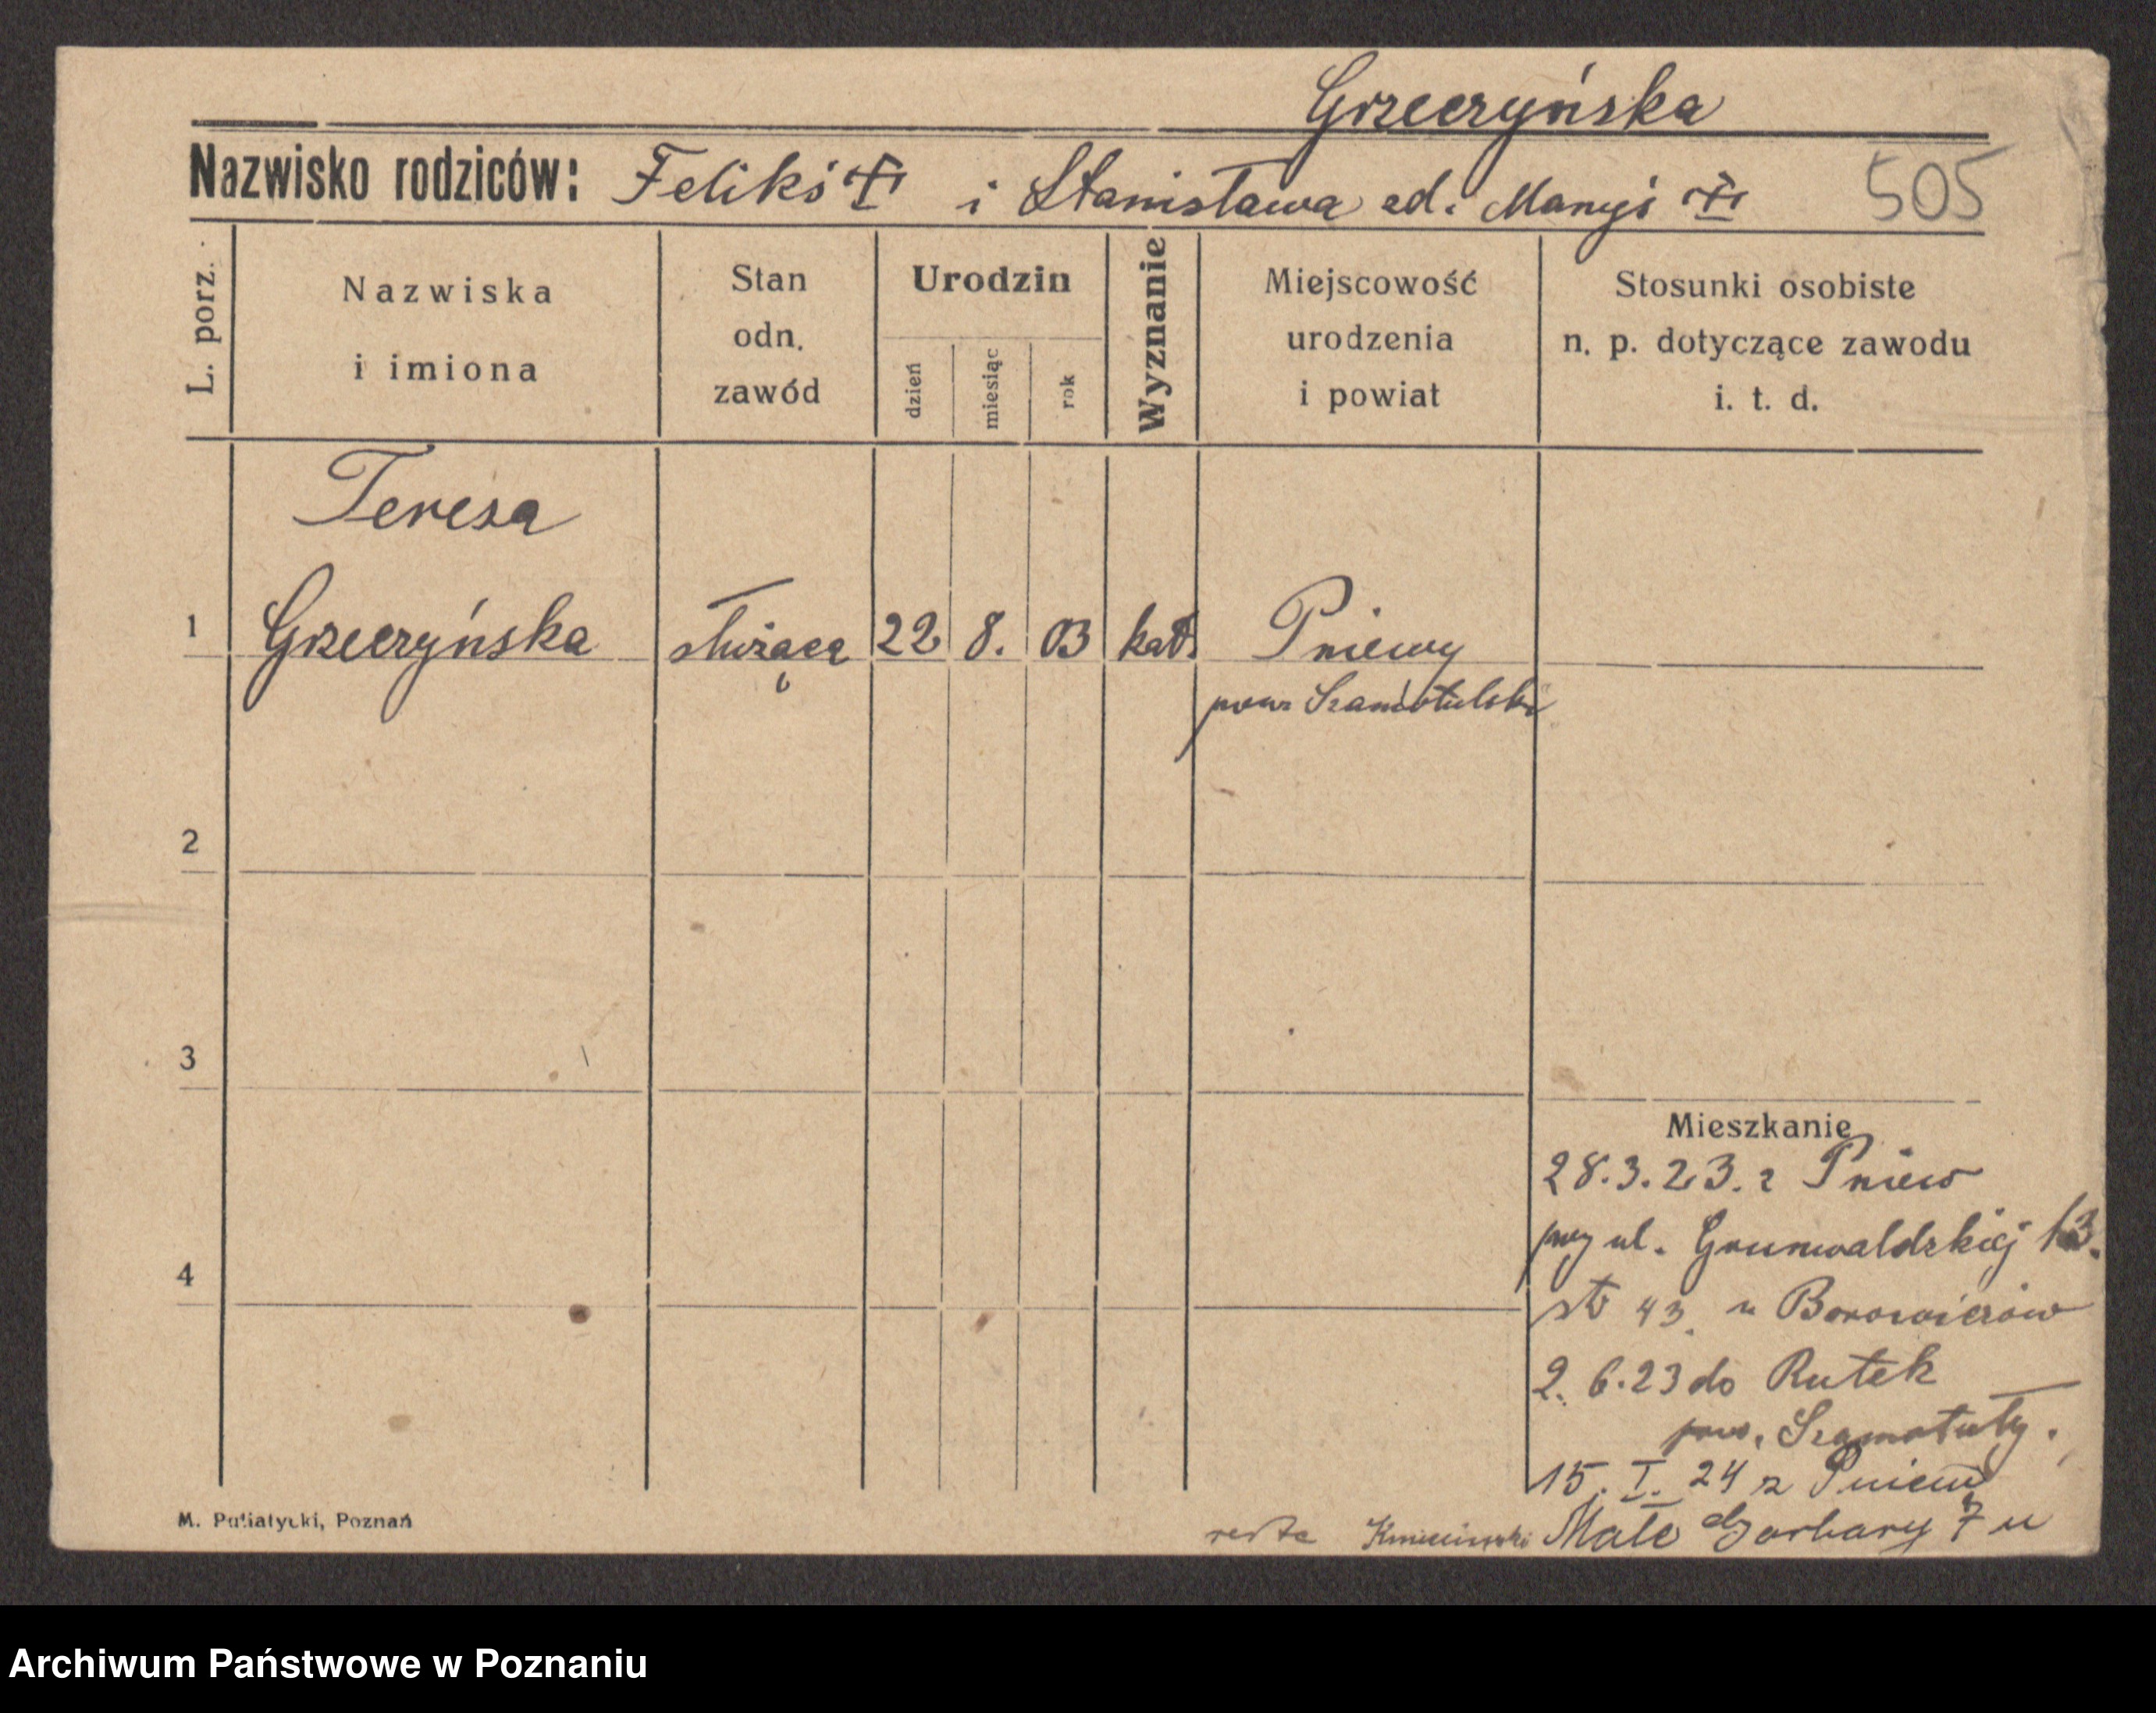 Grzeczyńska
Nazwisko rodziców: Feliks i Stanisława zd. Manyś 505
L. porz.
Nazwiska
i imiona
Stan
odn.
zawód
Urodzin
dzień
miesiąc
rok
Wyznanie
Miejscowość
urodzenia
i powiat
Stosunki osobiste
n. p. dotyczące zawodu
i. t. d.
Teresa
1 Grzeczyńska służąca 22 8. 03 kat. Pniewy
pow Szamotulski
2
3
Mieszkanie
28.3.23. z Pniew
przy ul. Grunwaldzkiej 13.
4
43. u Borowiczów
2. 6.23 do Rutek
pow. Szamotuły.
15. I. 24 z Pniew
M. Putiatycki, Poznań
Małe Garbary 7 u
Archiwum Państwowe w Poznaniu